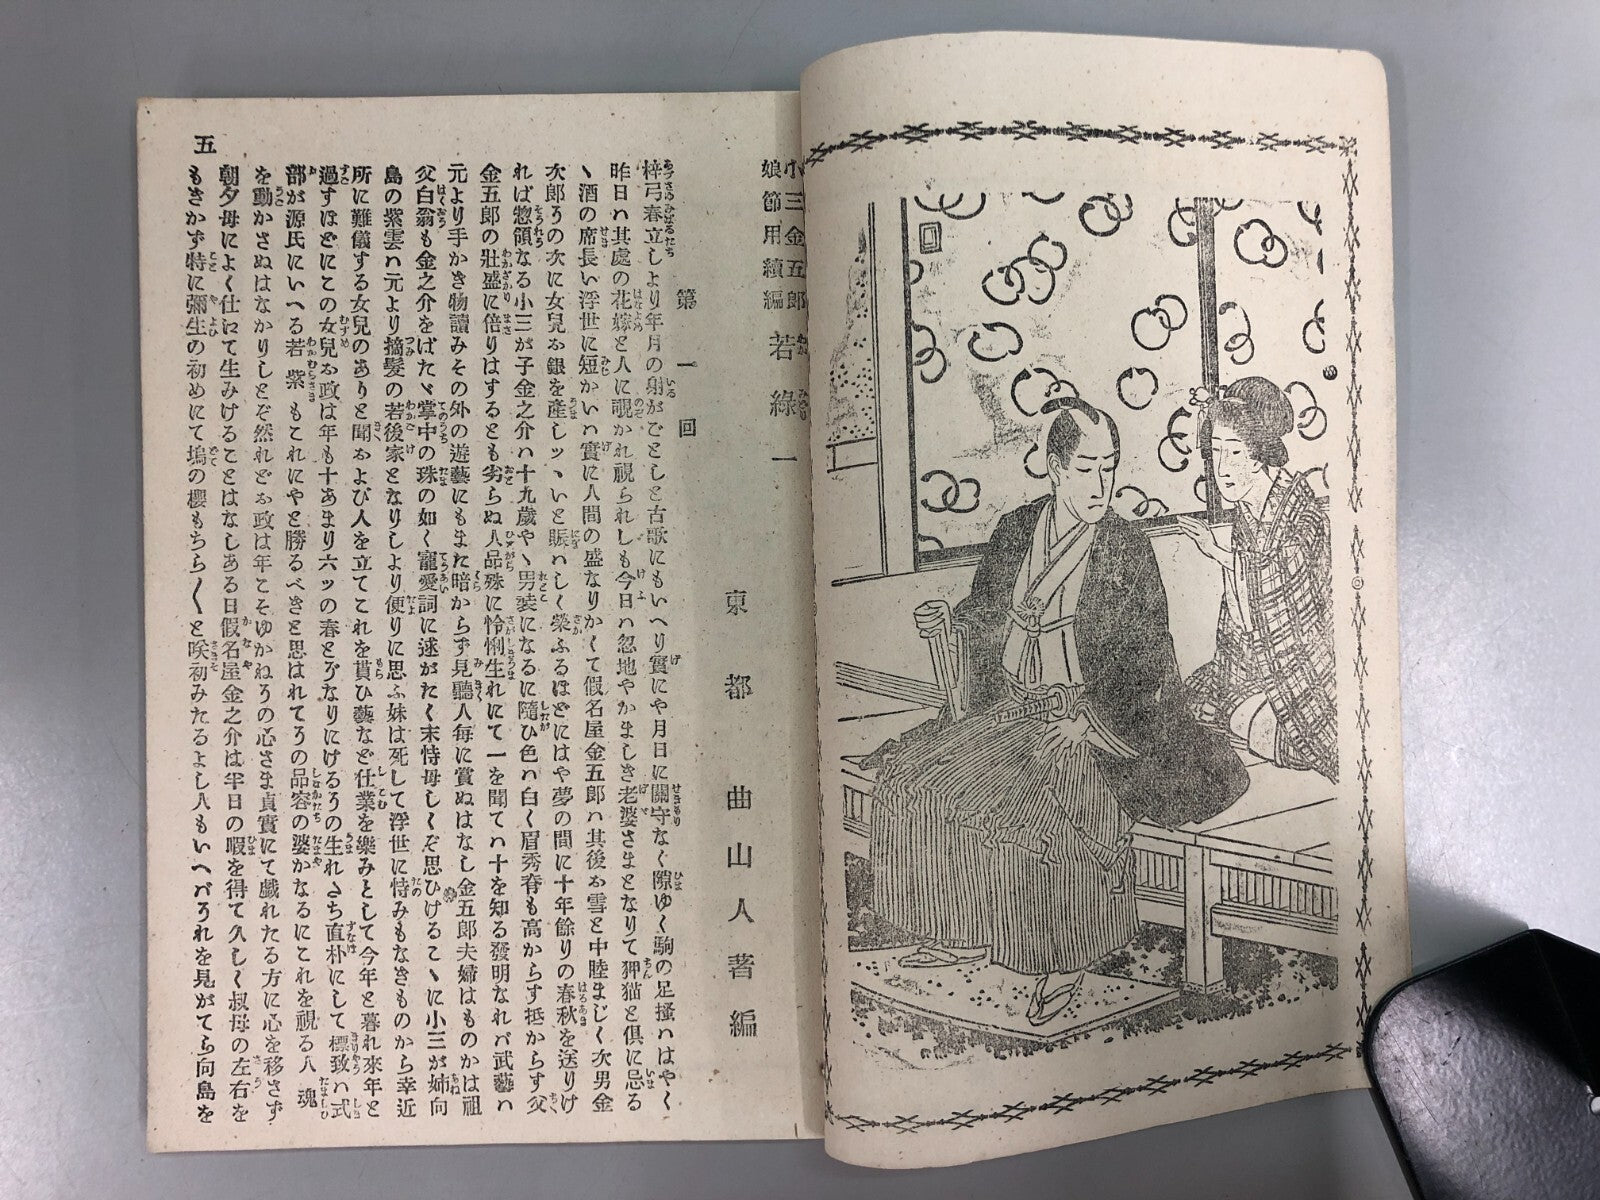 小三金五郎
娘節用續編
若綠一
東都 曲山人著編
第一回
梓弓春立しより年月の射がごとしと古歌にもいへり實にや月日に關守なく隙ゆく駒の足掻ハはやく
昨日ハ其處の花嫁と人に覗かれ視られしも今日ハ忽地やかましき老婆さまとなりて狎猫と俱に忌る
ヽ酒の席長い浮世に短かいハ實に人間の盛なりかくて假名屋金五郎ハ其後お雪と中睦まじく次男金
次郎その次に女兒お銀を產しツヽいと賑ハしく榮ふるほどにはや夢の間に十年餘りの春秋を送りけ
れば惣領なる小三が子金之介ハ十九歲やヽ男裝になるに隨ひ色ハ白く眉秀脊も高からず抵からず父
金五郎の壯盛に倍りはするとも劣らぬ人品殊に怜悧生れにて一を聞てハ十を知る發明なれバ武藝ハ
元より手かき物讀みその外の遊藝にもまた暗からず見聽人每に賞ぬはなし金五郎夫婦はものかは祖
父白翁も金之介をばたヾ掌中の珠の如く寵愛詞に述がたく末恃母しくぞ思ひけるこヽに小三が姉向
島の紫雲ハ元より摘髮の若後家となりしより便りに思ふ妹は死して浮世に恃みもなきものから幸近
所に難儀する女兒のありと聞および人を立てこれを貰ひ藝など仕業を樂みとして今年と暮れ來年と
過すほどにこの女兒お政は年も十あまり六ツの春とぞなりにけるその生れたち直朴にして標致ハ式
部が源氏にいへる若紫もこれにやと勝るべきと思はれてその品容の婆かなるにこれを視る人魂
を動かさぬはなかりしとぞ然れどお政は年こそゆかねその心さま貞實にて戲れたる方に心を移さず
朝夕母によく仕にて生みけることはなしある日假名屋金之介は半日の暇を得て久しく叔母の左右を
もきかず特に彌生の初めにて塢の櫻もちらちらと咲初みたるよし人もいへバそれを見がてら向島を
五